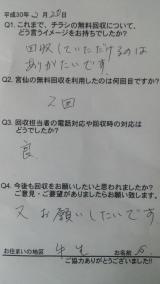 平成30年2月20日
Q1. これまで、チラシの無料回収について、
どう言うイメージをお持ちでしたか?
回収していただけるのは
ありがたいです。
Q2. 宮仙の無料回収を利用したのは何回目ですか?
2回
Q3. 回収担当者の電話対応や回収時の対応は
どうでしたか?
良
Q4. 今後も回収をお願いしたいと思われましたか?
ご意見・ご要望がありましたらお願い致します。
又お願いしたいです
お住まいの地区
お名前
ご協力ありがとうございました!!